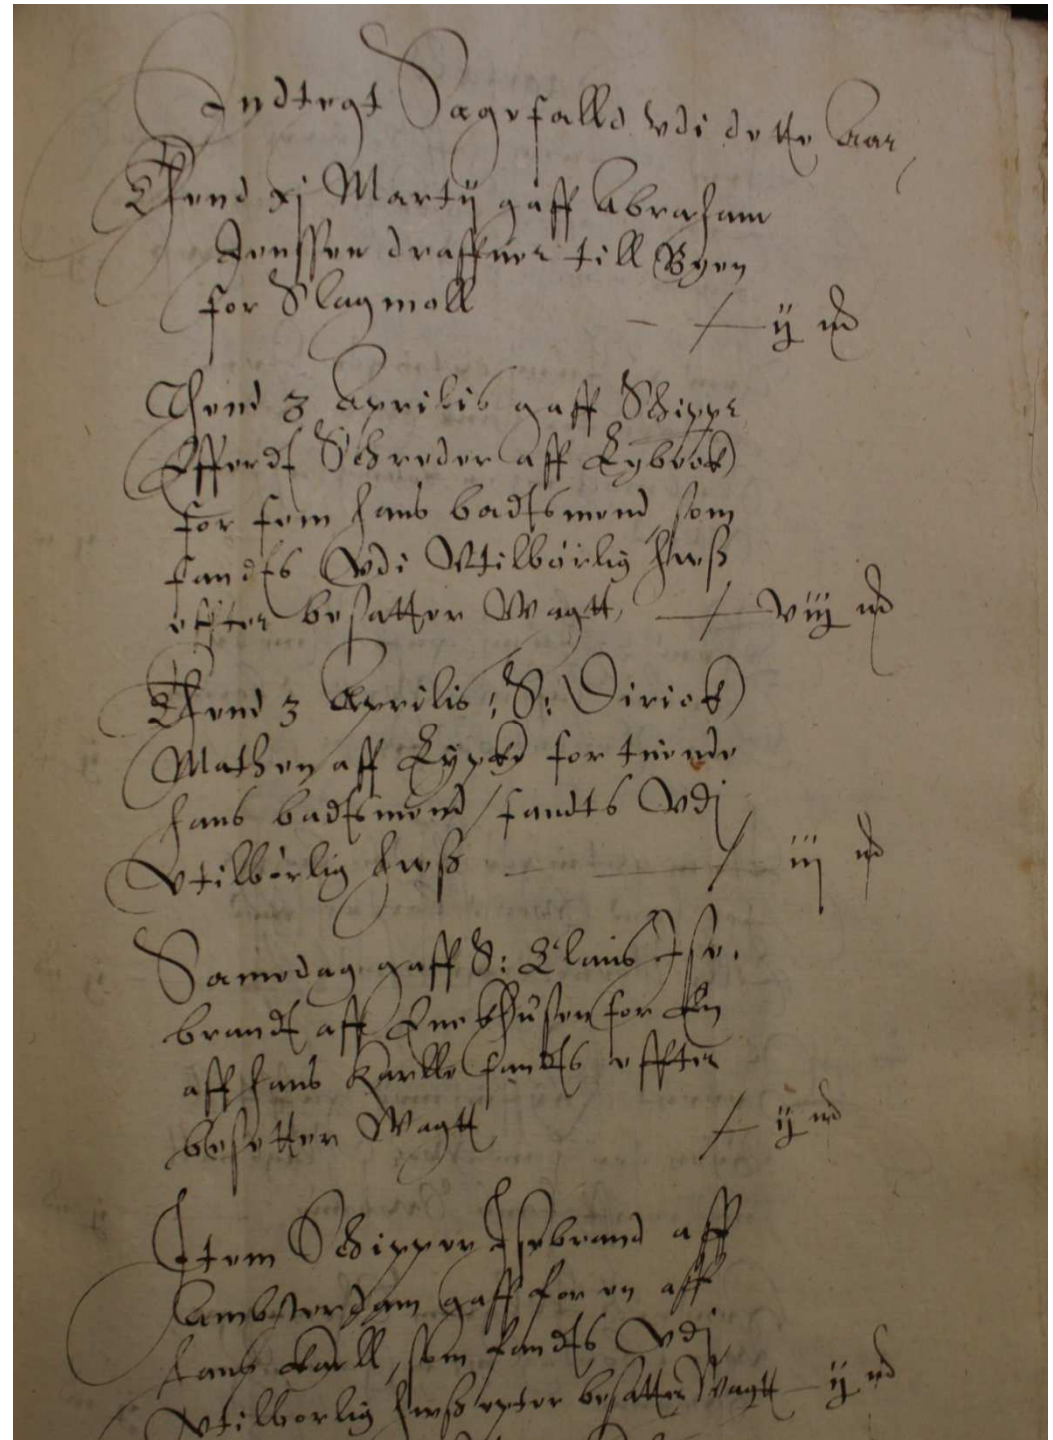 Indtegt Sagefalld vdi dette Aar
Thend xj Martij gaff Abraham
Jenssen draffuer till Byen
for Slagmall — ij md
Thend 3 Aprilis gaff Schipper
Efferdt Schreder aff Lybeck
for fem hans badtsmend som
fandts Vdi Vtilbørlig hwß
effter besatter Wagtt, — viij md
Thend 3 Aprilis, S: Dirick
Mathen aff Lypke for tuende
hans badtsmend / fandts Vdj
Vtilbørlig hwß — iij md
Samedag gaff S: Claus Ise-
brandt aff Enckhusen for En
aff hans Karlle fandts effter
besetter Wagtt ij md
Item Schipper Isebrand aff
Ambsterdam gaff for en aff
hans Karll, som fandts Vdj
Vtilborlig hwß epter besatter Wagtt — ij md